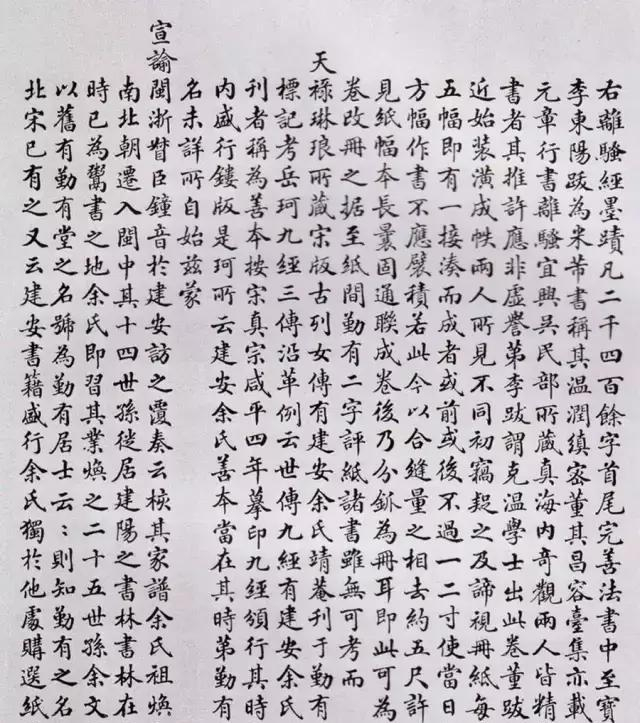 右離騷經墨蹟凡二千四百餘字首尾完善法書中至寶
李東陽跋為米芾書稱其温潤縝密董其昌容臺集亦載
元章行書離騷宜興吳民部所藏真海內奇觀兩人皆精
書者其推許應非虛譽第李跋謂克温學士出此卷董跋
近始裝潢成帙兩人所見不同初竊疑之及諦視冊紙每
五幅即有一接湊而成者或前或後不過一二寸使當日
方幅作書不應襞積若此今以合縫量之相去約五尺許
見紙幅本長曩固通聯成卷後乃分鈲為冊耳即此可為
卷改冊之据至紙間勤有二字評紙諸書雖無可考而
天祿琳琅所藏宋版古列女傳有建安余氏靖菴刊于勤有
標記考岳珂九經三傳沿革例云世傳九經有建安余氏
刊者稱為善本按宋真宗咸平四年摹印九經頒行其時
內盛行鏤版是珂所云建安余氏善本當在其時第勤有
名未詳所自始兹蒙
宣諭閩浙督臣鐘音於建安訪之覆奏云檢其家譜余氏祖煥
南北朝遷入閩中其十四世孫徙居建陽之書林書林在
時已為鬻書之地余氏即習其業煥之二十五世孫余文
以舊有勤有堂之名號為勤有居士云：則知勤有之名
北宋已有之又云建安書籍盛行余氏獨於他處購選紙